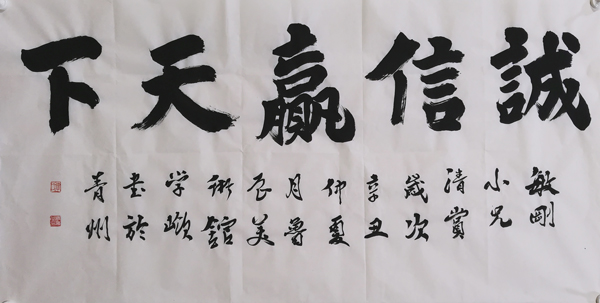 誠信贏天下
敏剛
小兄
清賞
歲次
辛丑
仲夏
月魯
辰美
術館
學嶔
書於
青州